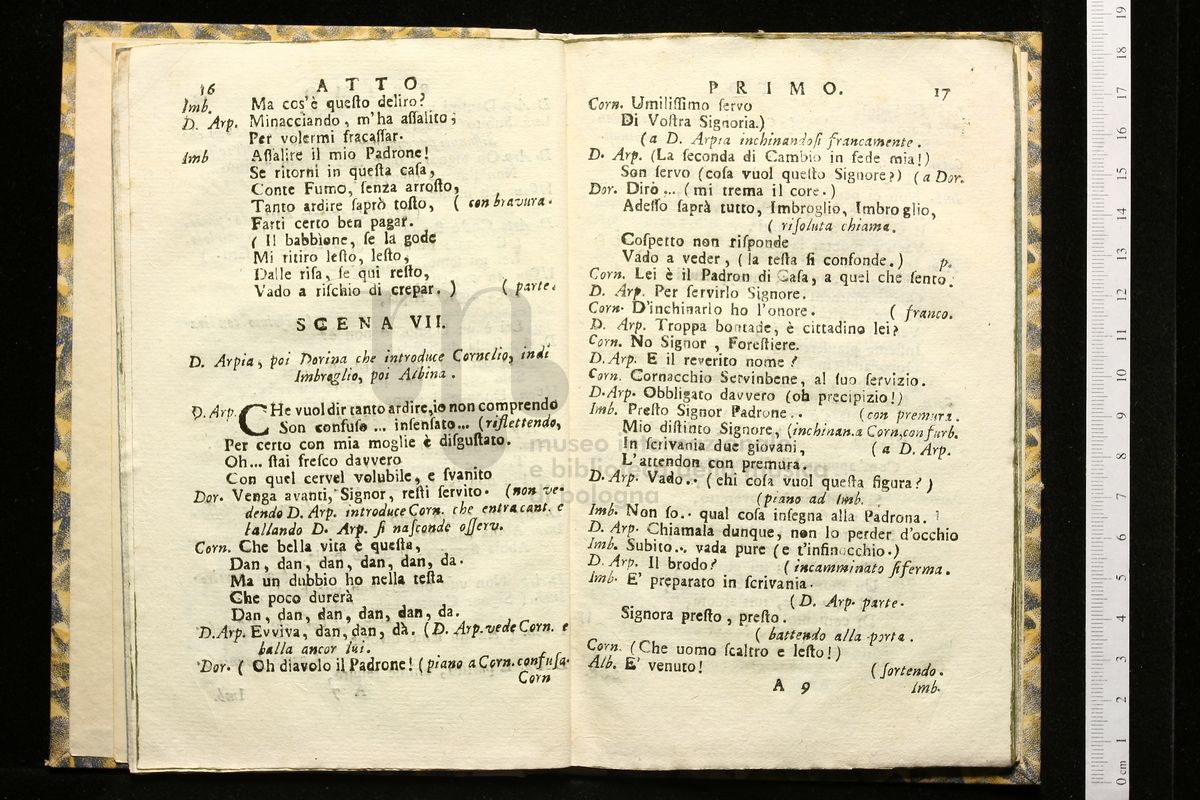 16 ATTO
Imb. Ma cos'è queſto deliro?
D. Arp. Minacciando, m'ha aſſalito;
Per volermi fracaſſar.
Imb Aſſalire il mio Padrone!
Se ritorni in queſta caſa,
Conte Fumo, ſenza arroſto,
Tanto ardire ſaprò toſto, ( con bravura.
Farti certo ben pagar.
( Il babbione, ſe la gode
Mi ritiro leſto, leſto,
Dalle riſa, ſe qui reſto,
Vado a riſchio di crepar. ) ( parte.
SCENA VII.
D. Arpia, poi Dorina che introduce Cornelio, indi
Imbroglio, poi Albina.
D. Arp. CHe vuol dir tanto ardire, io non comprendo
Son confuſo ... inſenſato... (riflettendo,
Per certo con mia moglie è diſguſtato.
Oh... ſtai freſco davvero
Con quel cervel volubile, e ſvanito
Dor. Venga avanti, Signor, reſti ſervito. (non ve-
dendo D. Arp. introduce Corn. che entra cant. e
ballando D. Arp. ſi naſconde oſſerv.
Corn. Che bella vita è queſta,
Dan, dan, dan, dan, dan, da.
Ma un dubbio ho nella teſta
Che poco durerà
Dan, dan, dan, dan, dan, da.
D. Arp. Evviva, dan, dan, dà. (D. Arp. vede Corn. e
balla ancor lui.
Dor. ( Oh diavolo il Padrone! (piano a Corn. confuſa.
Corn
PRIMO. 17
Corn. Umiliſſimo ſervo
Di Voſtra Signoria.)
(a D. Arpia inchinandoſi francamente.
D. Arp. (La ſeconda di Cambio in fede mia!)
Son ſervo (coſa vuol queſto Signore?) (a Dor.
Dor. Dirò ... (mi trema il core.)
Adeſſo ſaprà tutto, Imbroglio, Imbroglio,
( riſoluta chiama.
Coſpetto non riſponde
Vado a veder, (la teſta ſi confonde.) p.
Corn. Lei è il Padron di Caſa, a quel che ſento.
D. Arp. Per ſervirlo Signore.
Corn. D'inchinarlo ho l'onore. ( franco.
D. Arp. Troppa bontade, è cittadino lei?
Corn. No Signor, Foreſtiere.
D. Arp. E il reverito nome?
Corn. Cornacchio Servinbene, al ſuo ſervizio.
D. Arp. Obbligato davvero (oh precipizio!)
Imb. Preſto Signor Padrone.. (con premura.
Mio diſtinto Signore, (inchinan. a Corn. con furb.
In ſcrivania due giovani, ( a D. Arp.
L'attendon con premura.
D. Arp. Vado.. ( ehi coſa vuol queſta figura? )
(piano ad Imb.
Imb. Non ſo.. qual coſa inſegna alla Padrona.
D. Arp. Chiamala dunque, non lo perder d'occhio
Imb. Subito... vada pure (e t'infinocchio.)
D. Arp. Il brodo? ( incamminato ſi ferma.
Imb. E' preparato in ſcrivania.
(D. Arp. parte.
Signora preſto, preſto.
( battendo alla porta.
Corn. (Che uomo ſcaltro e leſto!)
Alb. E' venuto! (ſortendo.
A 9 Imb.
museo internazionale
e biblioteca della musica
di bologna
0 cm 1 2 3 4 5 6 7 8 9 10 11 12 13 14 15 16 17 18 19